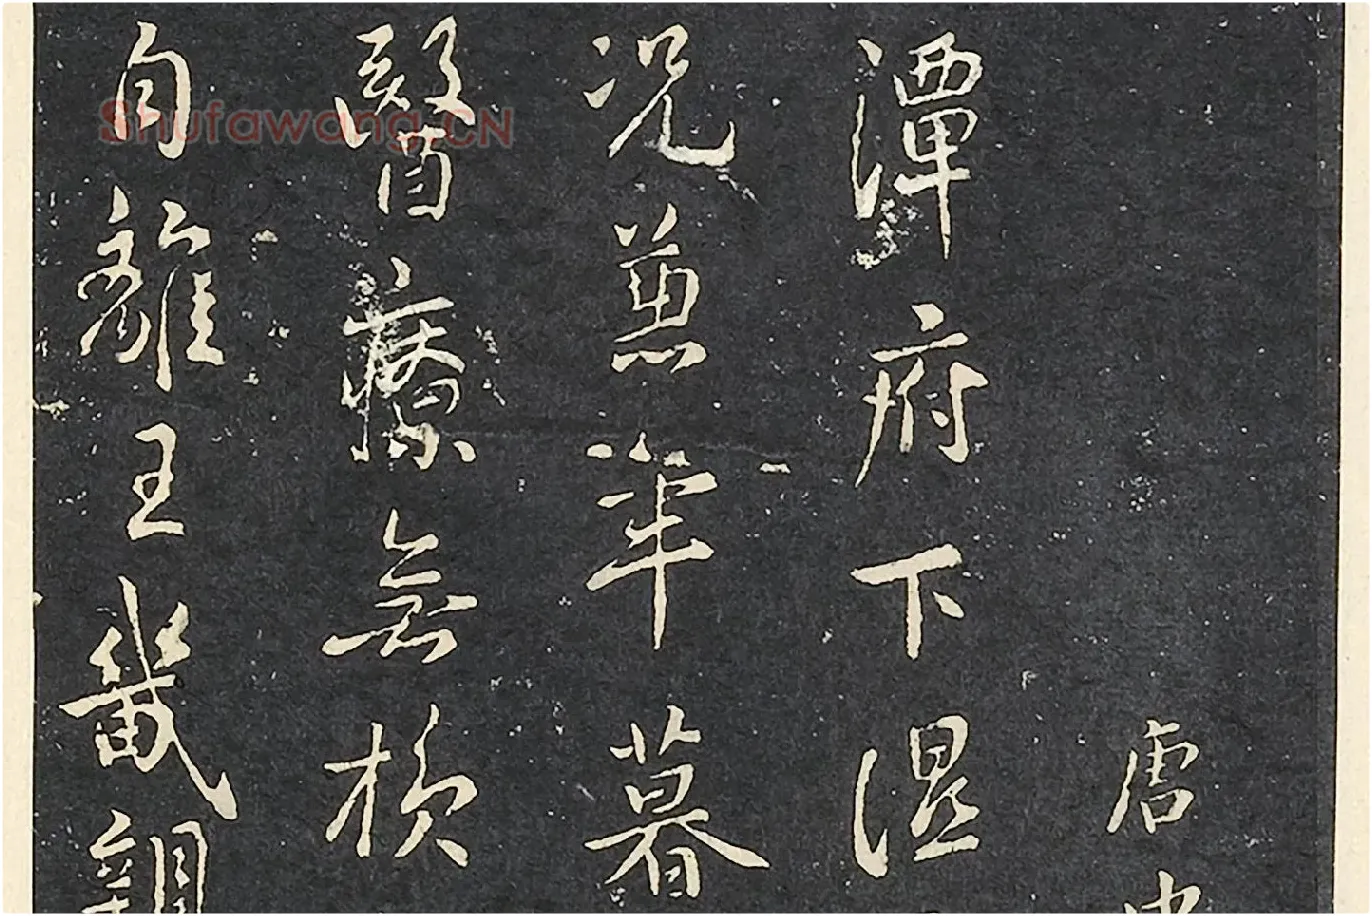 唐中
潭府下湿
况兼年暮
醫療無損
自離王畿親
Shufawang.CN